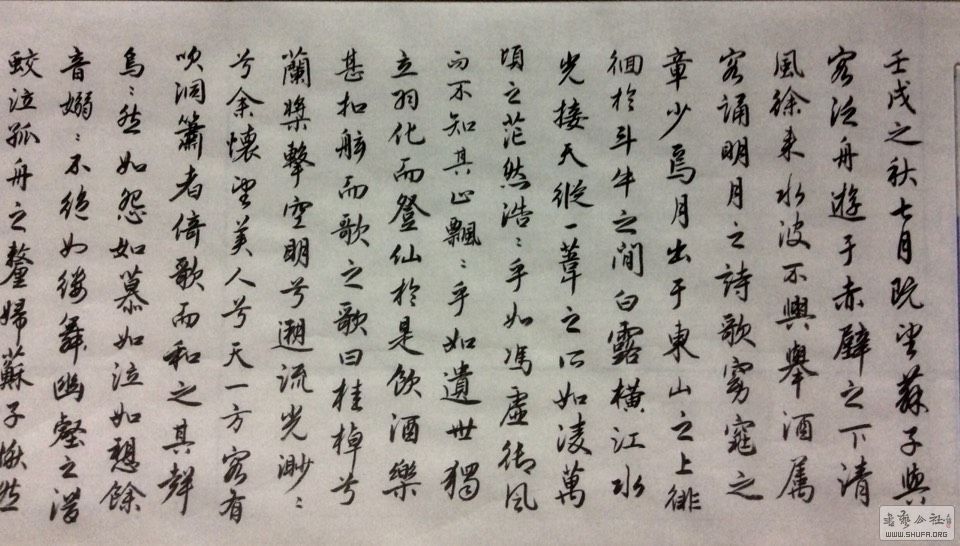 壬戌之秋七月既望蘇子與
客泛舟遊于赤壁之下清
風徐来水波不興舉酒属
客誦明月之詩歌窈窕之
章少焉月出于東山之上徘
徊於斗牛之間白露橫江水
光接天縱一葦之所如淩萬
頃之茫然浩〻乎如馮虛御風
而不知其止飄〻乎如遺世獨
立羽化而登仙於是飲酒樂
甚扣舷而歌之歌曰桂棹兮
蘭槳擊空明兮遡流光渺〻
兮余懷望美人兮天一方客有
吹洞簫者倚歌而和之其聲
烏〻然如怨如慕如泣如愬餘
音嫋〻不絕如縷舞幽壑之潜
蛟泣孤舟之嫠婦蘇子愀然
WWW.SHUFA.ORG